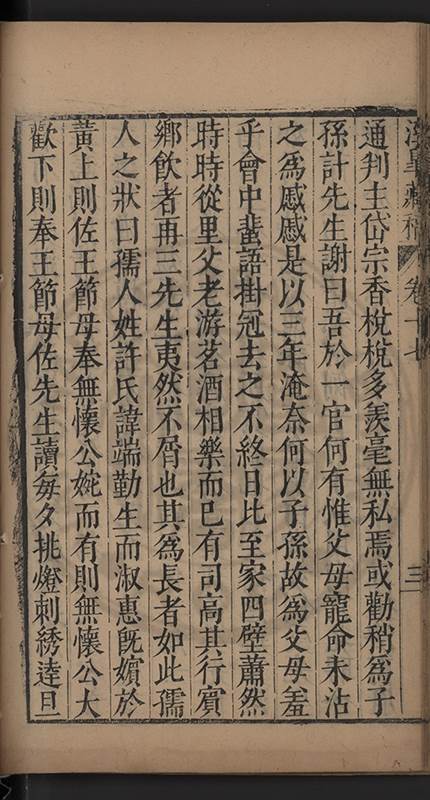 藏稿 卷十七 三
通判主岱宗香梲梲多羨毫無私焉或勸稍為子
孫計先生謝曰吾於一官何有惟父母寵命未沾
之為戚戚是以三年淹奈何以子孫故為父母羞
乎會中蜚語掛冠去之不終日比至家四壁蕭然
時時從里父老游茗酒相樂而已有司高其行賓
鄉飲者再三先生夷然不屑也其為長者如此孺
人之狀曰孺人姓許氏諱端勤生而淑惠旣嬪於
黃上則佐王節母奉無懷公婉而有則無懷公大
歡下則奉王節母佐先生讀每夕挑燈刺綉達旦